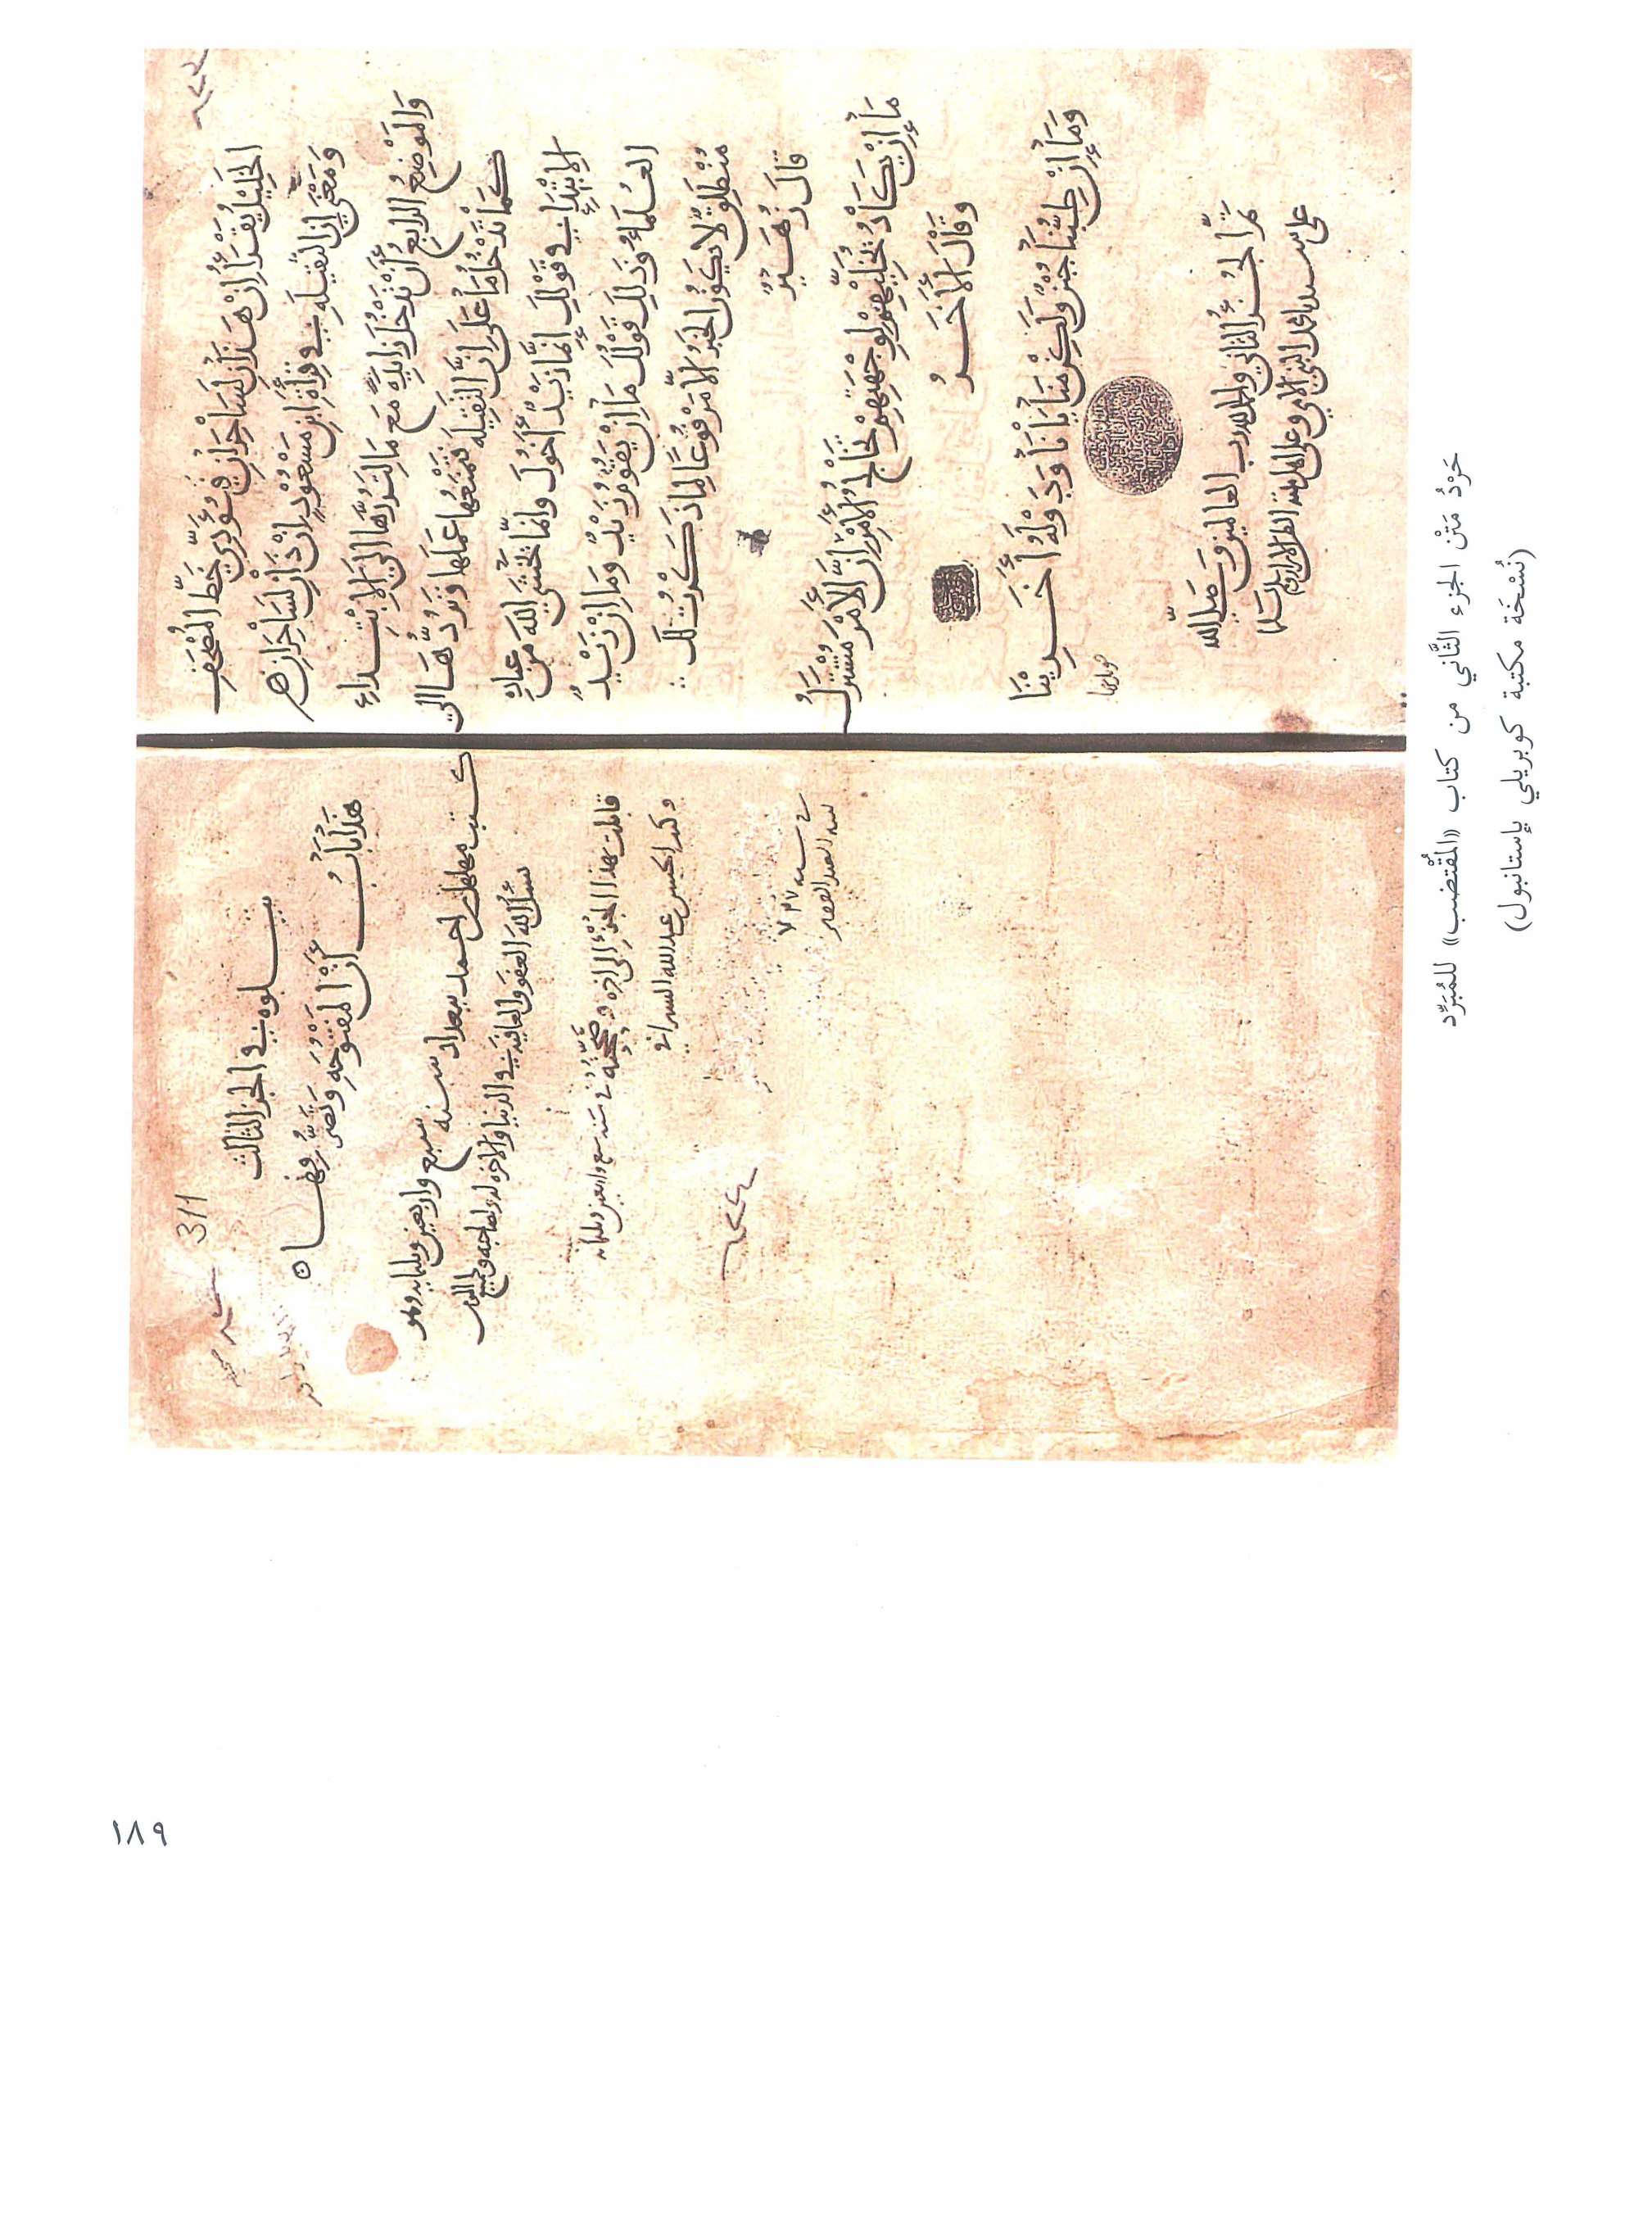 الخليل يقرأ إن هذان لساحران فيؤدي خط المصحف
ومعنى إن الثقيلة في قراءة ابن مسعود إن ذان لساحران
والموضع الرابع أن تدخل زايدة مع ما لتردها إلى الابتداء
كما تدخل ما على إن الثقيلة فتمنعها عملها وتردها إلى
الابتداء في قولك إنما زيد أخوك وإنما يخشى الله من عباده
العلماء وذلك قولك ما إن يقوم زيد وما إن زيد
منطلق لا يكون الخبر إلا مرفوعا لما ذكرت لك
قال زهير
ما إن يكاد يخليهم لوجهتهم تخالج الأمر إن الأمر مشترك
وقال الآخر
وما إن طبنا جبن ولكن منايانا ودولة آخرينا
تم الجزء الثاني والحمد لله رب العالمين وصلى الله
على سيدنا محمد النبي الأمي وعلى أهل بيته الطاهرين وسلم
311
يتلوه في الجزء الثالث
هذا باب أن المفتوحة وتصرفها
كتب مهلهل بن احمد ببغداد سنة سبع واربعين وثلثمايه وهو
يسأل الله العفو والعافية في الدنيا والآخرة له ولصاحبه ولجميع
قابلت بهذا الجزء إلى آخره وصححته في سنة سبع واربعين وثلثمايه
وكتب الحسن بن عبد الله السيرافي
في سنه
حَرْدُ مَتْن الجزء الثَّاني من كتاب «المُقْتضب» للمُبَرِّد
(نُسْخَة مكتبة كوبريلي بإستانبول)
١٨٩